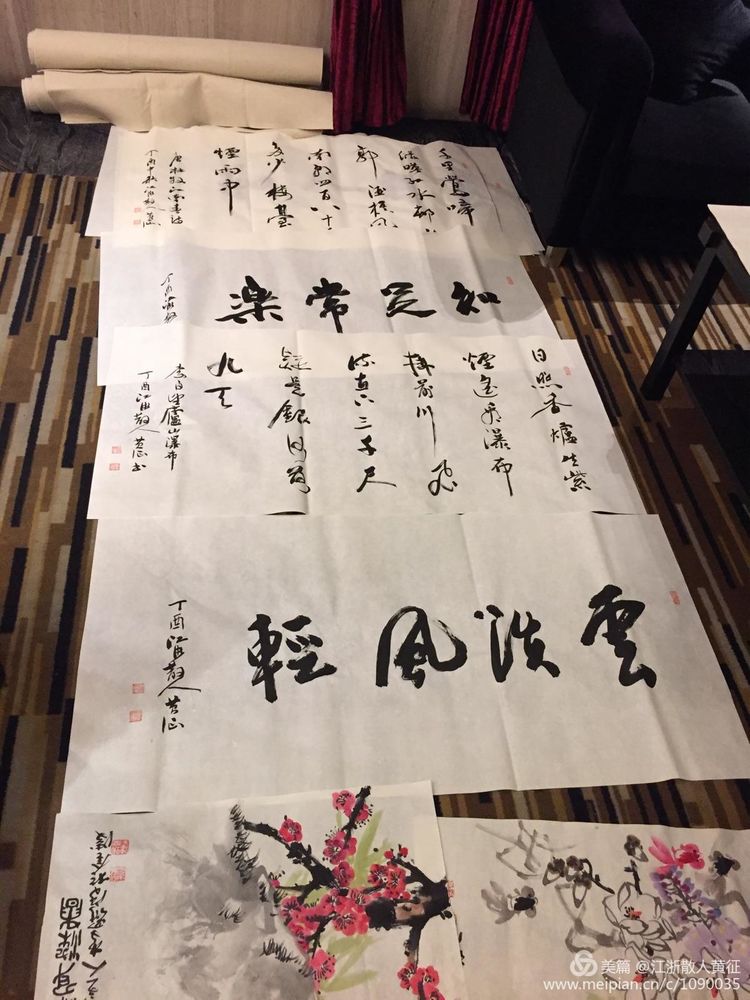 千里鶯啼
綠暎紅水邨山
郭酒旗風
南朝四百八十
多少樓臺
煙雨中
唐杜牧江南春詩
丁酉中秋
知足常楽
日照香爐生紫
煙遙看瀑布
掛前川飛
流直下三千尺
疑是銀河落
九天
李白望廬山瀑布
丁酉江浙散人黄征书
雲淡風輕
丁酉江浙散人黄征
美篇 @江浙散人黄征
www.meipian.cn/c/1090035